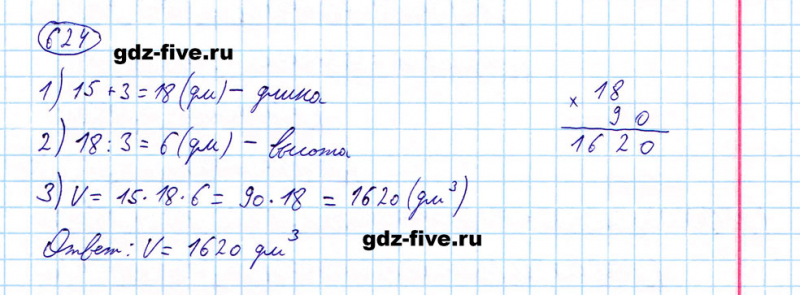 624
gdz-five.ru
1) 15 + 3 = 18 (дм) – длина
2) 18 : 3 = 6 (дм) – высота
3) V = 15 · 18 · 6 = 90 · 18 = 1620 (дм³)
Ответ: V = 1620 дм³
gdz-five.ru
× 18
90
1620